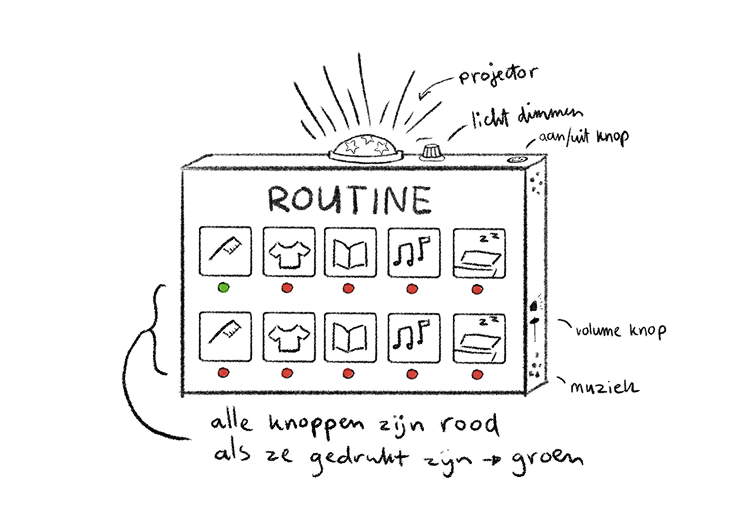 projector
licht dimmen
aan/uit knop
ROUTINE
z z
z z
volume knop
muziek
alle knoppen zijn rood
als ze gedrukt zijn → groen